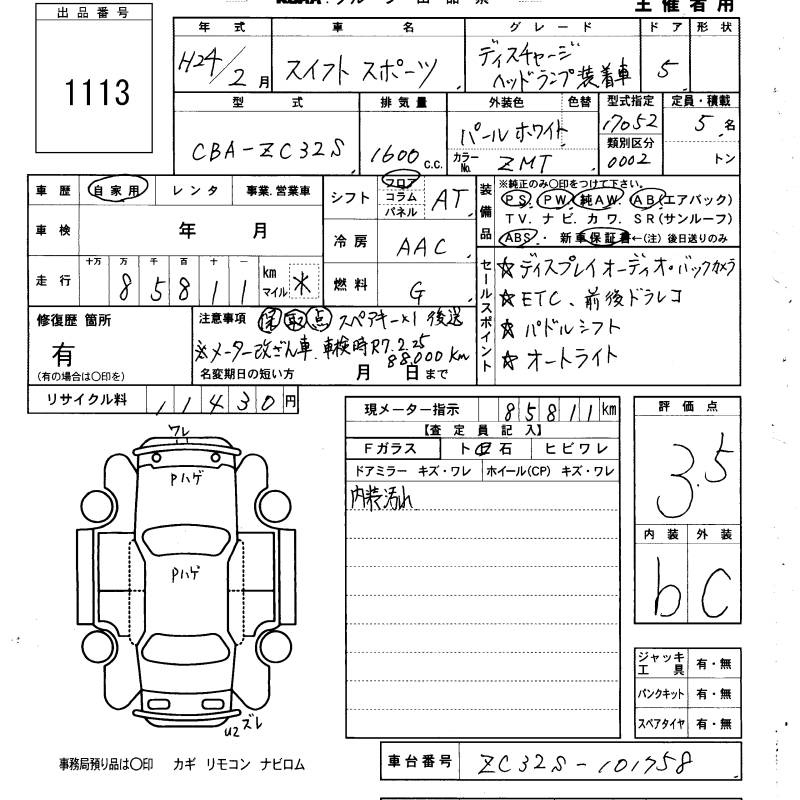 出品番号
1113
主催者用
年式 車名 グレード ドア 形状
H24/2月 スイフト スポーツ ディスチャージ ヘッドランプ装着車 5
型式 排気量 外装色 色替 型式指定 定員・積載
CBA-ZC32S 1600 c.c. パールホワイト 17052 5名
カラーNo. ZMT 類別区分 0002 トン
車歴 自家用 レンタ 事業.営業車
シフト フロア コラム パネル AT
装備品 ※純正のみ〇印をつけて下さい。
PS. PW. 純AW. AB(エアバック)
TV. ナビ. カワ. SR(サンルーフ)
ABS・ 新車保証書←(注)後日送りのみ
車検 年 月
冷房 AAC
走行 十万 万 千 百 十 一
85811 km マイル ※
燃料 G
セールスポイント
☆ディスプレイオーディオ・バックカメラ
☆ETC、前後ドラレコ
☆パドルシフト
☆オートライト
修復歴 箇所
有
(有の場合は〇印を)
注意事項 保 取 点 スペアキー×1 後送
※メーター改ざん車. 車検時R7.2.25
88,000km
名変期日の短い方 月 日まで
リサイクル料 11430円
現メーター指示 85811km
【査定員記入】
Fガラス ト 石 ヒビワレ
ドアミラー キズ・ワレ ホイール(CP) キズ・ワレ
内装汚れ
評価点
3.5
内装 外装
b C
ワレ
Pハゲ
Pハゲ
U2ズレ
ジャッキ 工具 有・無
パンクキット 有・無
スペアタイヤ 有・無
事務局預り品は〇印 カギ リモコン ナビロム
車台番号 ZC32S-101758